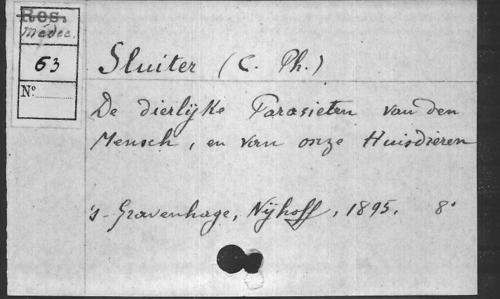 Ros.
médec.
63
N°
Sluiter (C. Ph.)
De dierlijke Parasieten van den
Mensch, en van onze Huisdieren
's-Gravenhage, Nijhoff, 1895. 8°